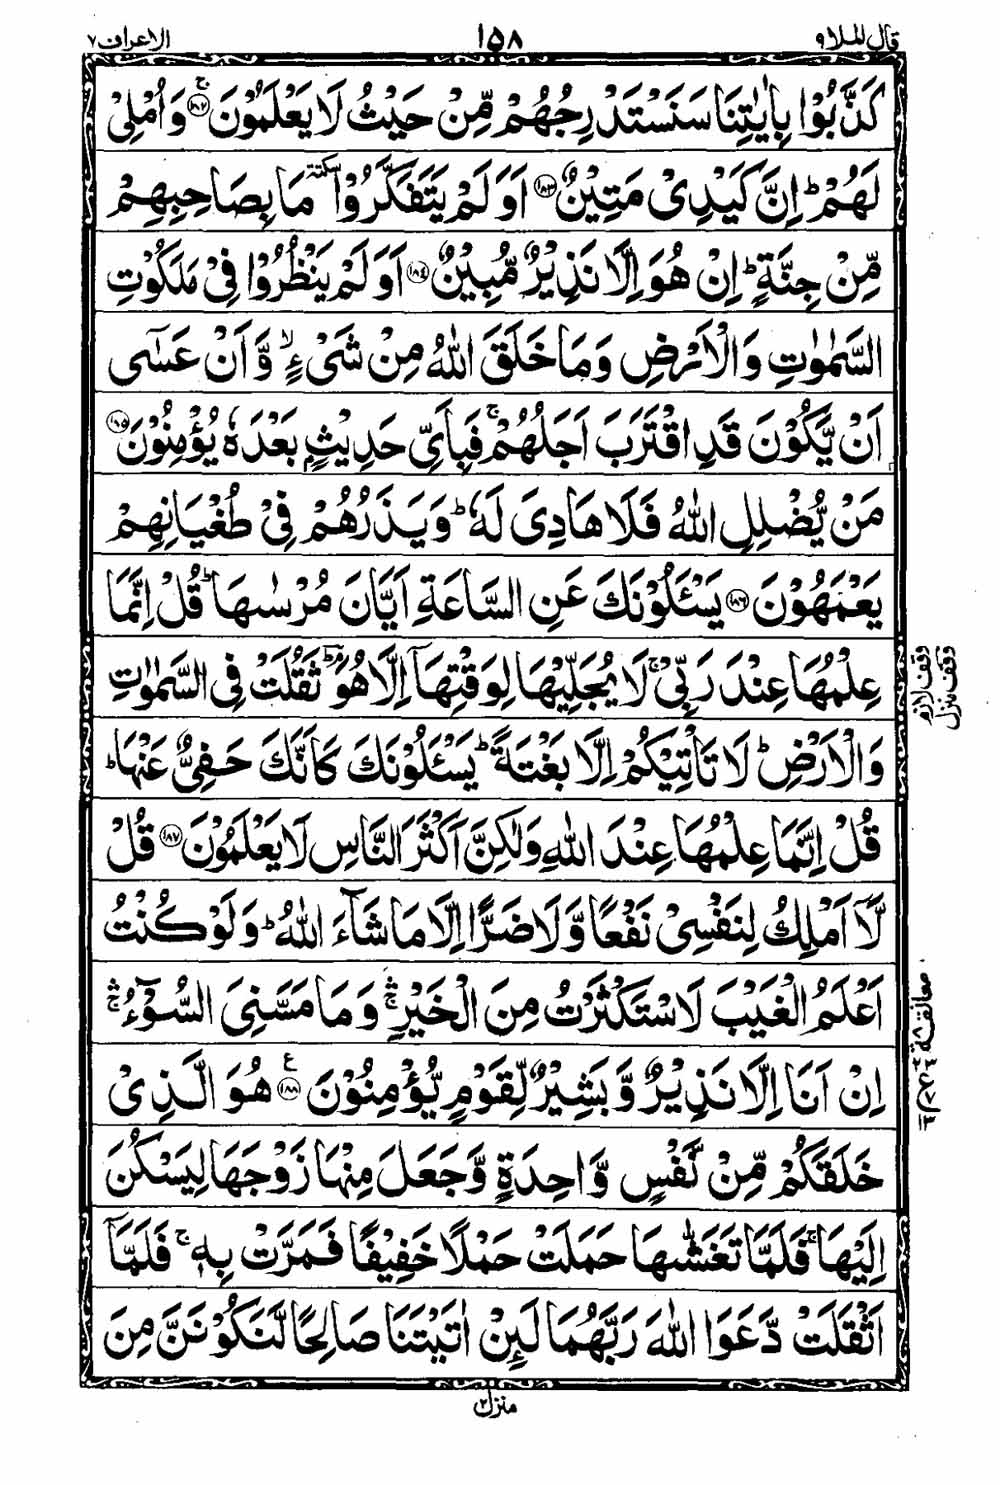 قال الملا ٩
١٥٨
الاعراف ٧
كَذَّبُوۡا بِاٰيٰتِنَا سَنَسۡتَدۡرِجُهُمۡ مِّنۡ حَيۡثُ لَا يَعۡلَمُوۡنَ ۚ‏ ﴿۱۸۲﴾ وَاُمۡلِىۡ
لَهُمۡ ؕ اِنَّ كَيۡدِىۡ مَتِيۡنٌ‏ ﴿۱۸۳﴾ اَوَلَمۡ يَتَفَكَّرُوۡا سكتة مَا بِصَاحِبِهِمۡ
مِّنۡ جِنَّةٍ ؕ اِنۡ هُوَ اِلَّا نَذِيۡرٌ مُّبِيۡنٌ‏ ﴿۱۸٤﴾ اَوَلَمۡ يَنۡظُرُوۡا فِىۡ مَلَكُوۡتِ
السَّمٰوٰتِ وَالۡاَرۡضِ وَمَا خَلَقَ اللّٰهُ مِنۡ شَىۡءٍ ۙ وَّاَنۡ عَسٰٓى
اَنۡ يَّكُوۡنَ قَدِ اقۡتَرَبَ اَجَلُهُمۡ ۚ فَبِاَىِّ حَدِيۡثٍۢ بَعۡدَهٗ يُؤۡمِنُوۡنَ‏ ﴿۱۸۵﴾
مَنۡ يُّضۡلِلِ اللّٰهُ فَلَا هَادِىَ لَهٗ ؕ وَ يَذَرُهُمۡ فِىۡ طُغۡيَانِهِمۡ
يَعۡمَهُوۡنَ‏ ﴿۱۸۶﴾ يَسۡـَٔلُوۡنَكَ عَنِ السَّاعَةِ اَيَّانَ مُرۡسٰٮهَا ؕ قُلۡ اِنَّمَا
عِلۡمُهَا عِنۡدَ رَبِّىۡ ۚ لَا يُجَلِّيۡهَا لِوَقۡتِهَاۤ اِلَّا هُوَ ؔۘ ثَقُلَتۡ فِى السَّمٰوٰتِ
وَالۡاَرۡضِ ؕ لَا تَاۡتِيۡكُمۡ اِلَّا بَغۡتَةً ؕ يَسۡـَٔلُوۡنَكَ كَاَنَّكَ حَفِىٌّ عَنۡهَا ؕ
قُلۡ اِنَّمَا عِلۡمُهَا عِنۡدَ اللّٰهِ وَلٰـكِنَّ اَكۡثَرَ النَّاسِ لَا يَعۡلَمُوۡنَ‏ ﴿۱۸۷﴾ قُلْ
لَّاۤ اَمۡلِكُ لِنَفۡسِىۡ نَفۡعًا وَّلَا ضَرًّا اِلَّا مَا شَآءَ اللّٰهُ ؕ وَلَوۡ كُنۡتُ
اَعۡلَمُ الۡغَيۡبَ لَاسۡتَكۡثَرۡتُ مِنَ الۡخَيۡرِ ۛۚ وَمَا مَسَّنِىَ السُّوۡٓءُ ۛۚ
اِنۡ اَنَا اِلَّا نَذِيۡرٌ وَّبَشِيۡرٌ لِّقَوۡمٍ يُّؤۡمِنُوۡنَ‏ ﴿۱۸۸﴾ ع هُوَ الَّذِىۡ
خَلَقَكُمۡ مِّنۡ نَّفۡسٍ وَّاحِدَةٍ وَّجَعَلَ مِنۡهَا زَوۡجَهَا لِيَسۡكُنَ
اِلَيۡهَا ۚ فَلَمَّا تَغَشّٰٮهَا حَمَلَتۡ حَمۡلًا خَفِيۡفًا فَمَرَّتۡ بِهٖ ۚ فَلَمَّاۤ
اَثۡقَلَتۡ دَّعَوَا اللّٰهَ رَبَّهُمَا لَٮِٕنۡ اٰتَيۡتَـنَا صَالِحًا لَّـنَكُوۡنَنَّ مِنَ
وقف لازم
وقف منزل
معانقة
منزل ٢